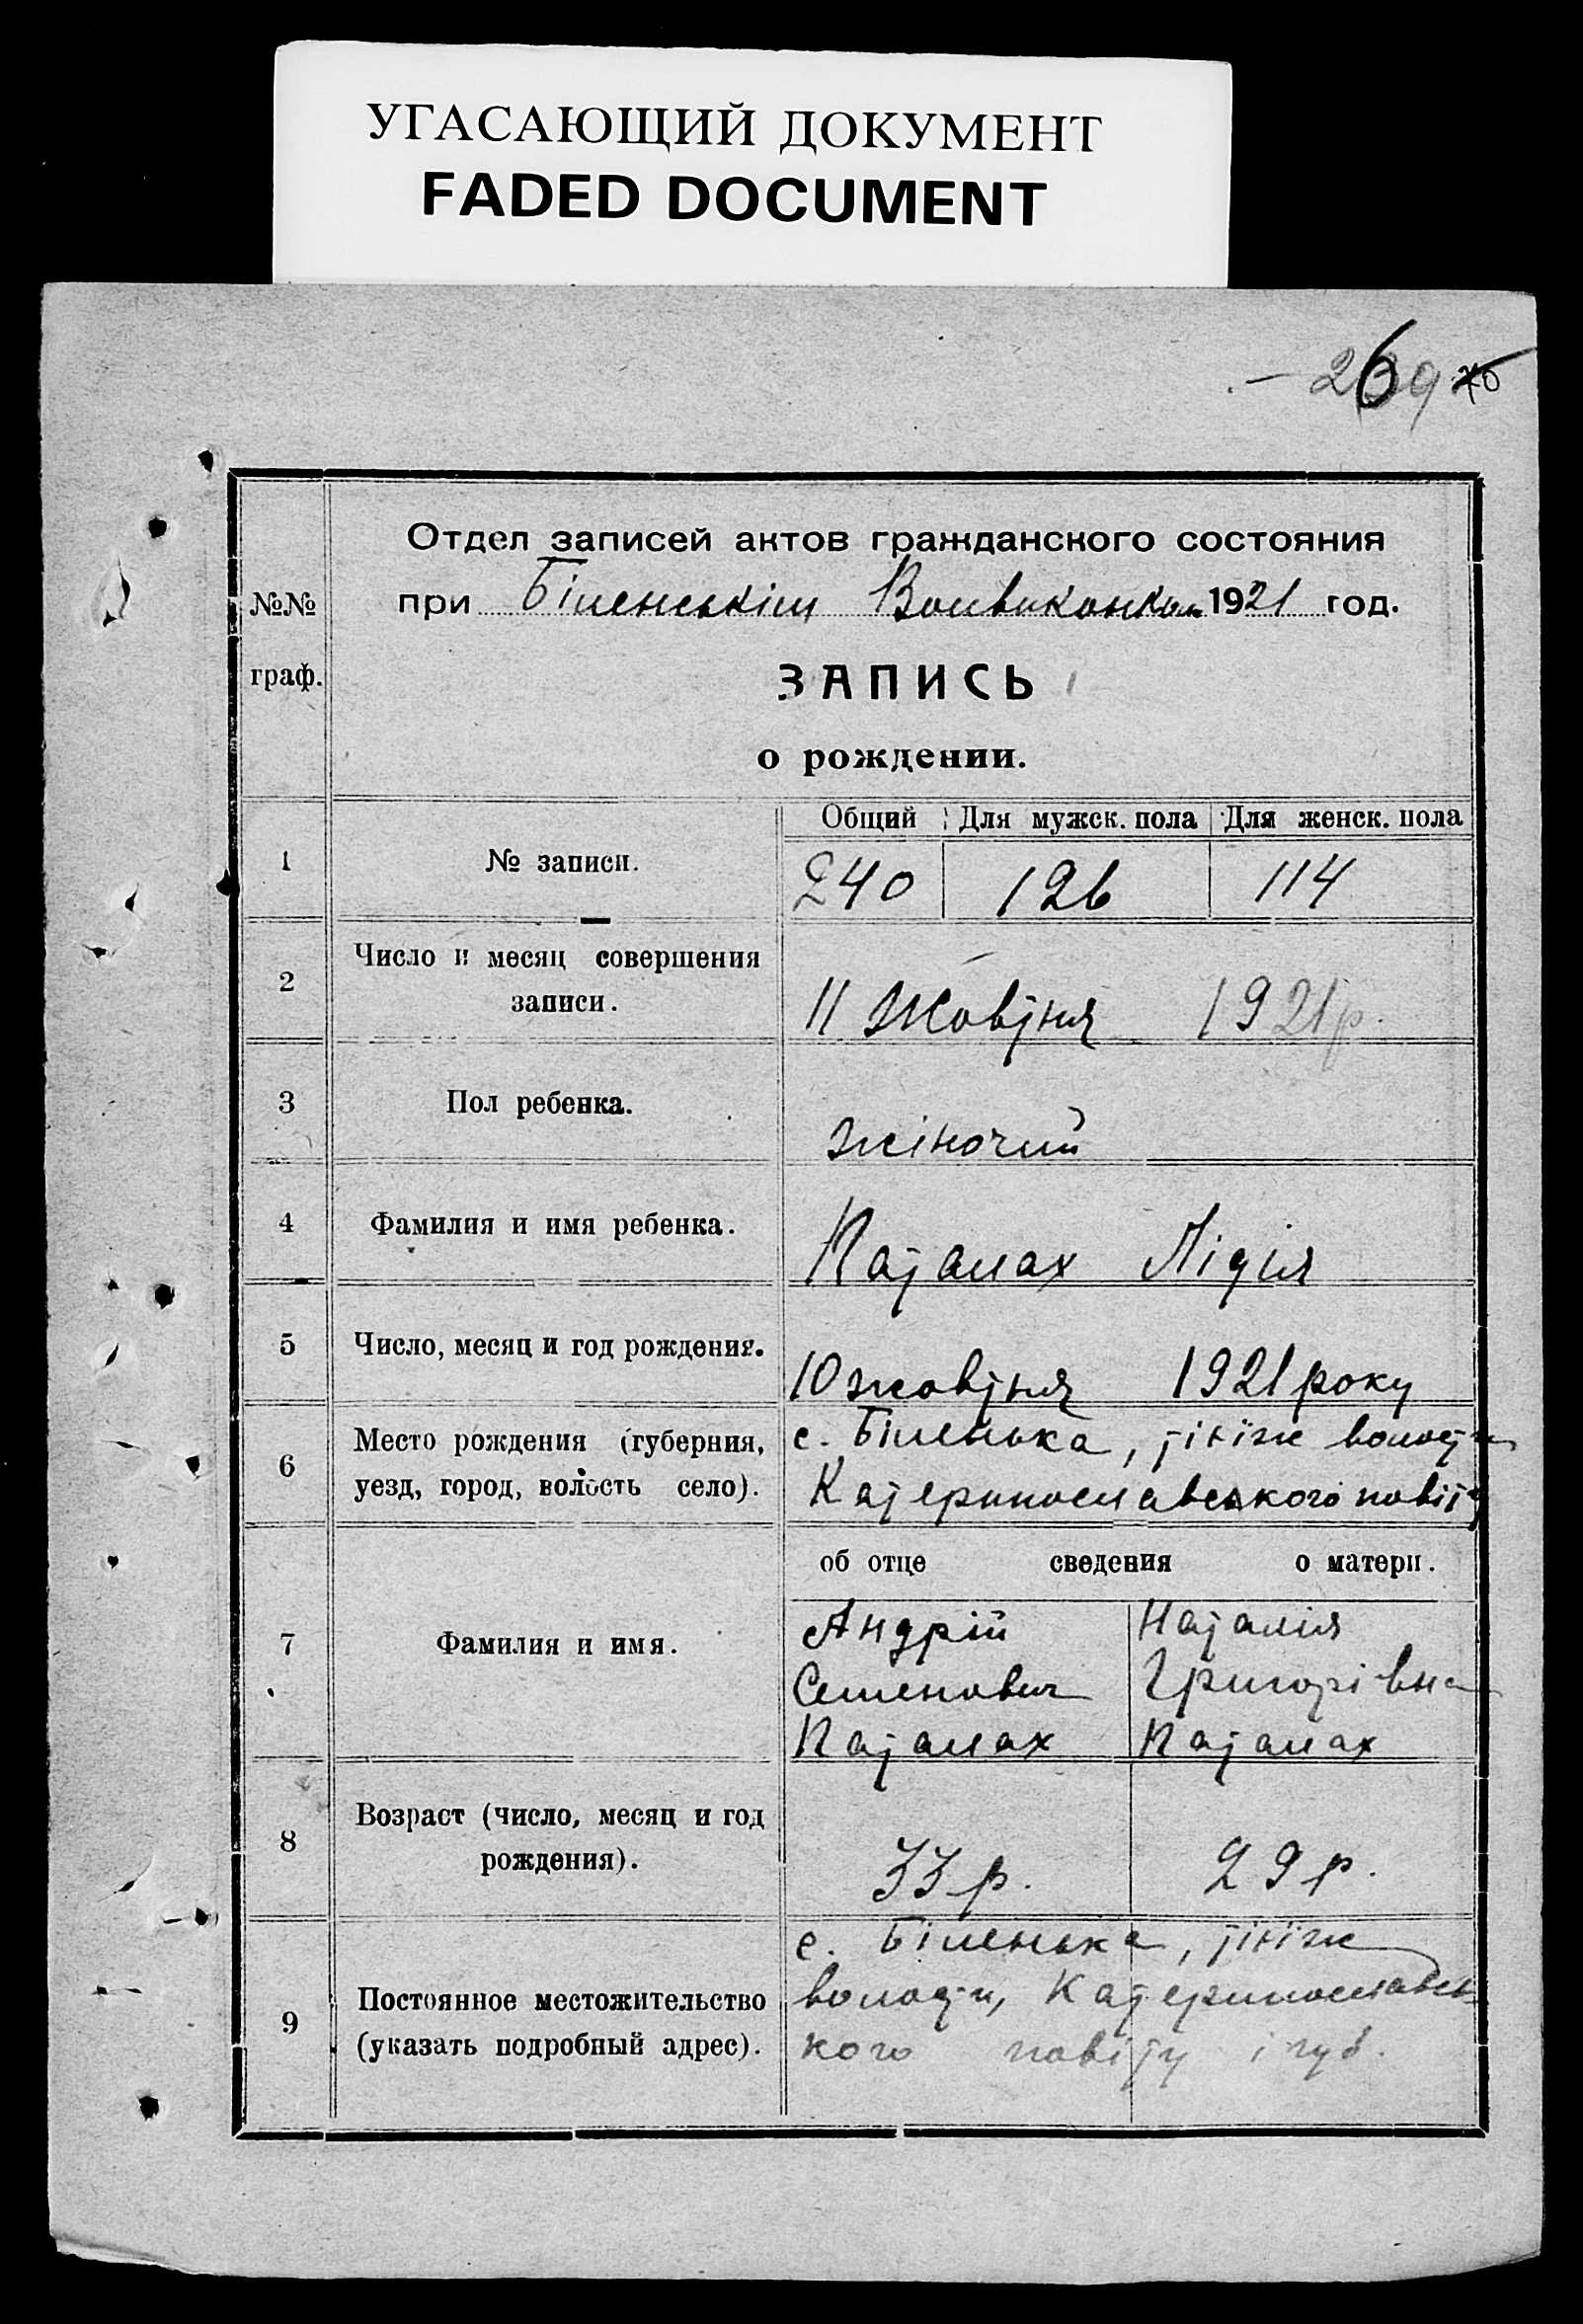 УГАСАЮЩИЙ ДОКУМЕНТ
FADED DOCUMENT
№№ граф.
Отдел записей актов гражданского состояния
при Біленськім Волвиконком 1921 год.
ЗАПИСЬ
о рождении.
Общий Для мужск. пола Для женск. пола
1 № записи. 240 126 114
2 Число и месяц совершения
записи. 11 Жовтня 1921 р.
3 Пол ребенка. жіночий
4 Фамилия и имя ребенка. Паталах Лідія
5 Число, месяц и год рождения. 10 жовтня 1921 року
6 Место рождения (губерния, с. Біленька, тієїж волости
уезд, город, волость село). Катеринославського повіту
об отце сведения о матери.
7 Фамилия и имя.
Андрій Наталія
Семенович Григорівна
Паталах Паталах
8 Возраст (число, месяц и год
рождения). 33 р. 29 р.
с. Біленька, тієїж
9 Постоянное местожительство волости, Катеринославсь-
(указать подробный адрес). кого повіту і губ.